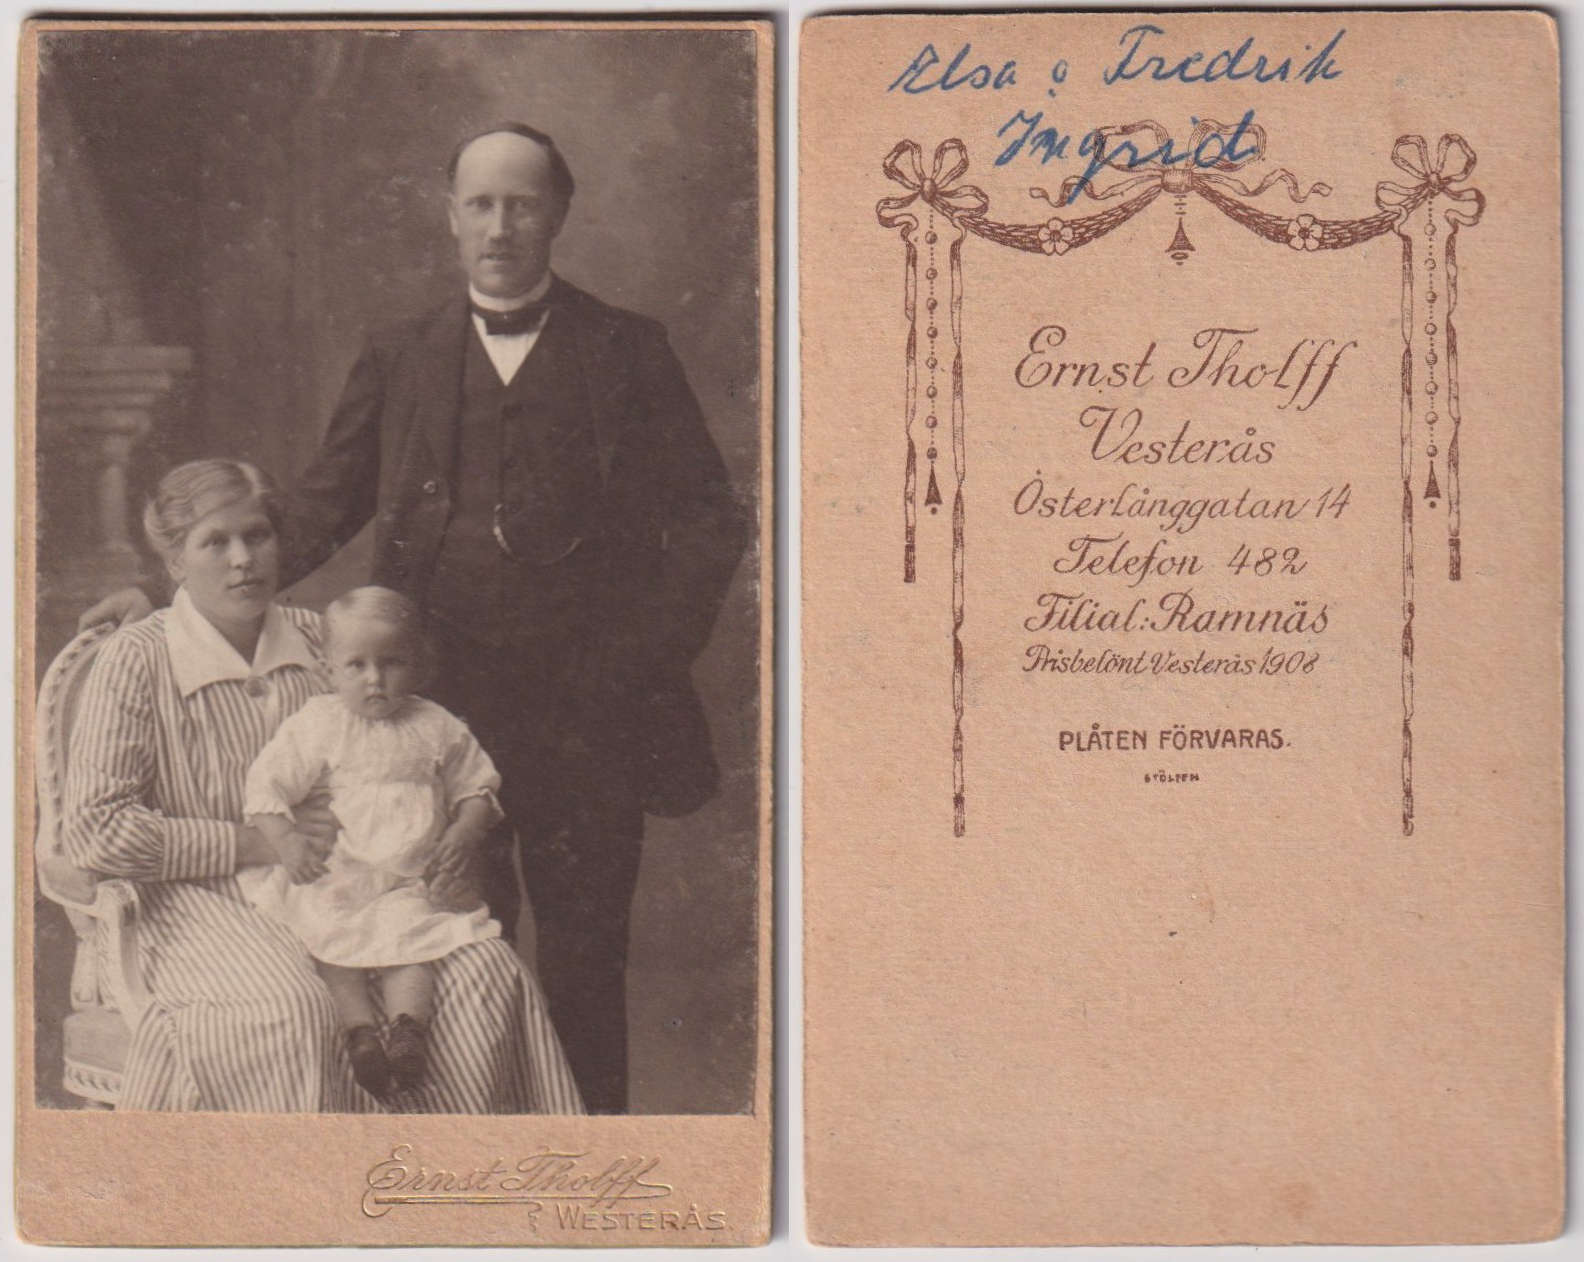 Ernst Tholff
WESTERÅS.
Elsa o Fredrik
Ingrid
Ernst Tholff
Vesterås
Österlånggatan 14
Telefon 482
Filial: Ramnäs
Prisbelönt Vesterås 1908
PLÅTEN FÖRVARAS.
STÖLTEN